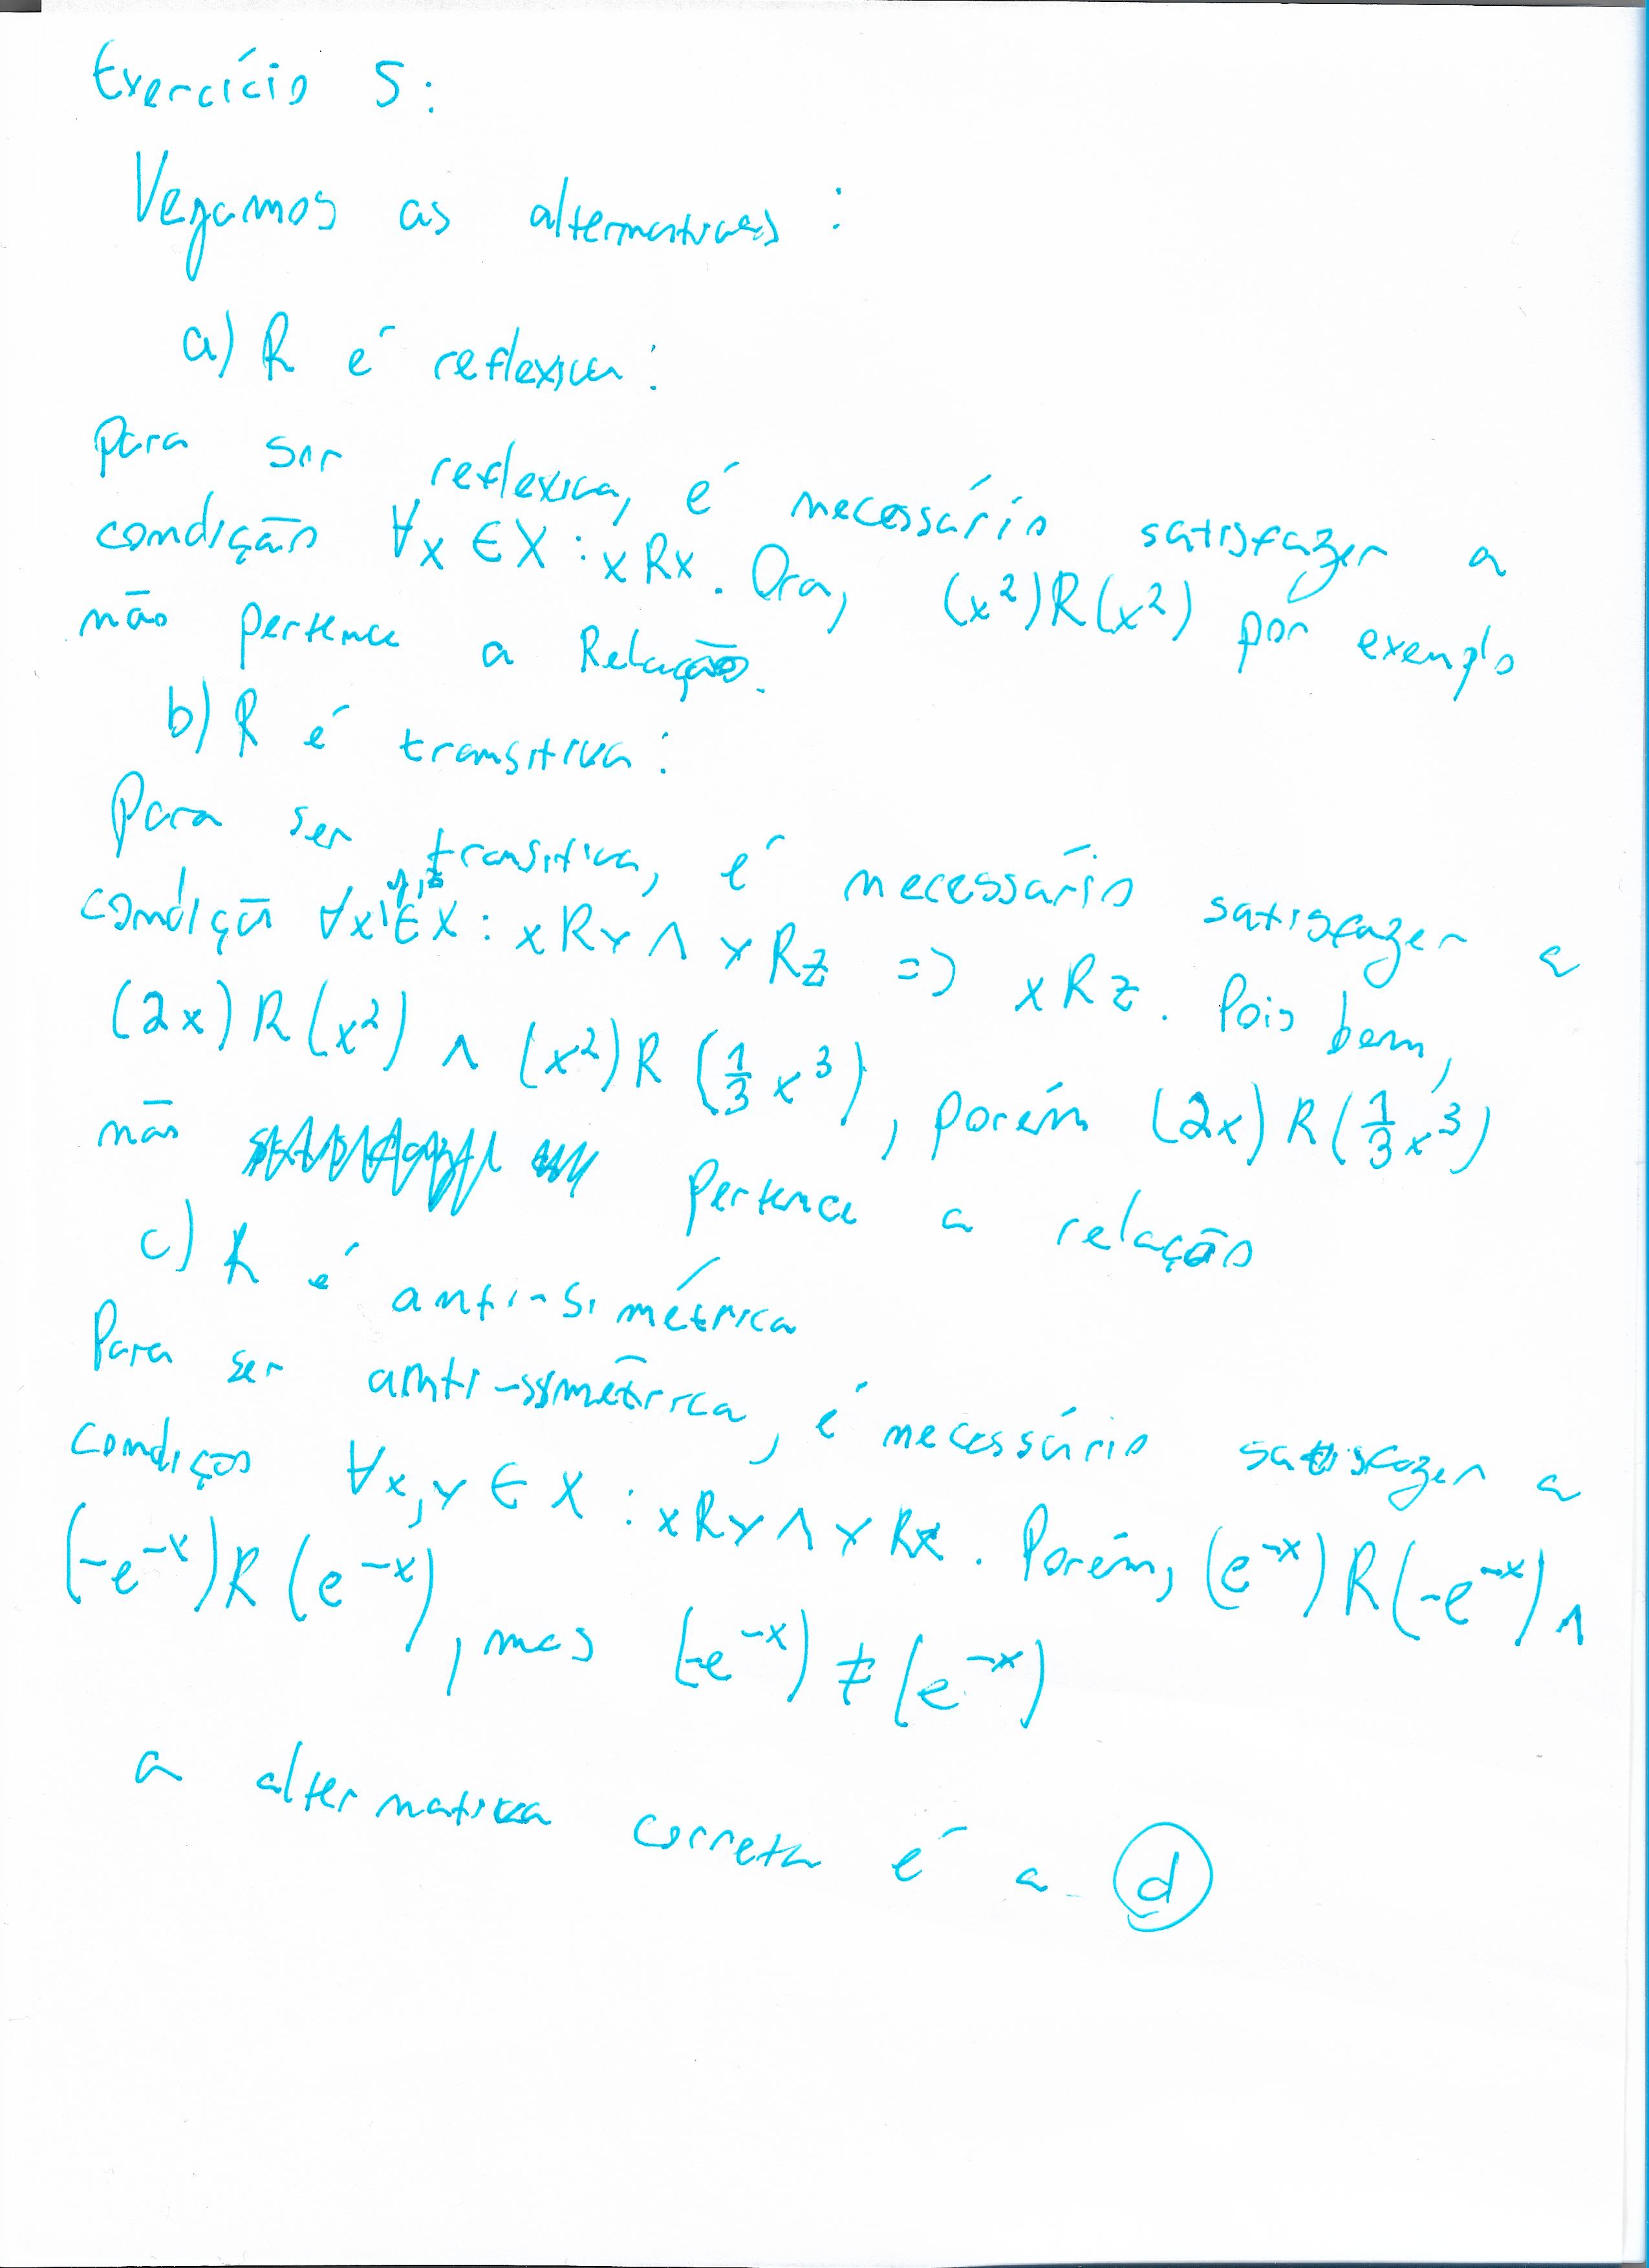 Exercício 5:
Vejamos as alternativas:
a) R é reflexiva:
Para ser reflexiva, é necessário satisfazer a
condição ∀x ∈ X : xRx. Ora, (x²)R(x²) por exemplo
não pertence a Relação.
b) R é transitiva:
Para ser transitiva, é necessário satisfazer a
condição ∀x,y,z ∈ X : xRy ∧ yRz => xRz. Pois bem,
(2x)R(x²) ∧ (x²)R(1/3 x³), porém (2x)R(1/3 x³)
não pertence a relação
c) R é anti-simétrica
Para ser anti-simétrica, é necessário satisfazer a
condição ∀x,y ∈ X : xRy ∧ yRx. Porém, (e⁻ˣ)R(-e⁻ˣ) ∧
(-e⁻ˣ)R(e⁻ˣ), mas (-e⁻ˣ) ≠ (e⁻ˣ)
a alternativa correta é a d